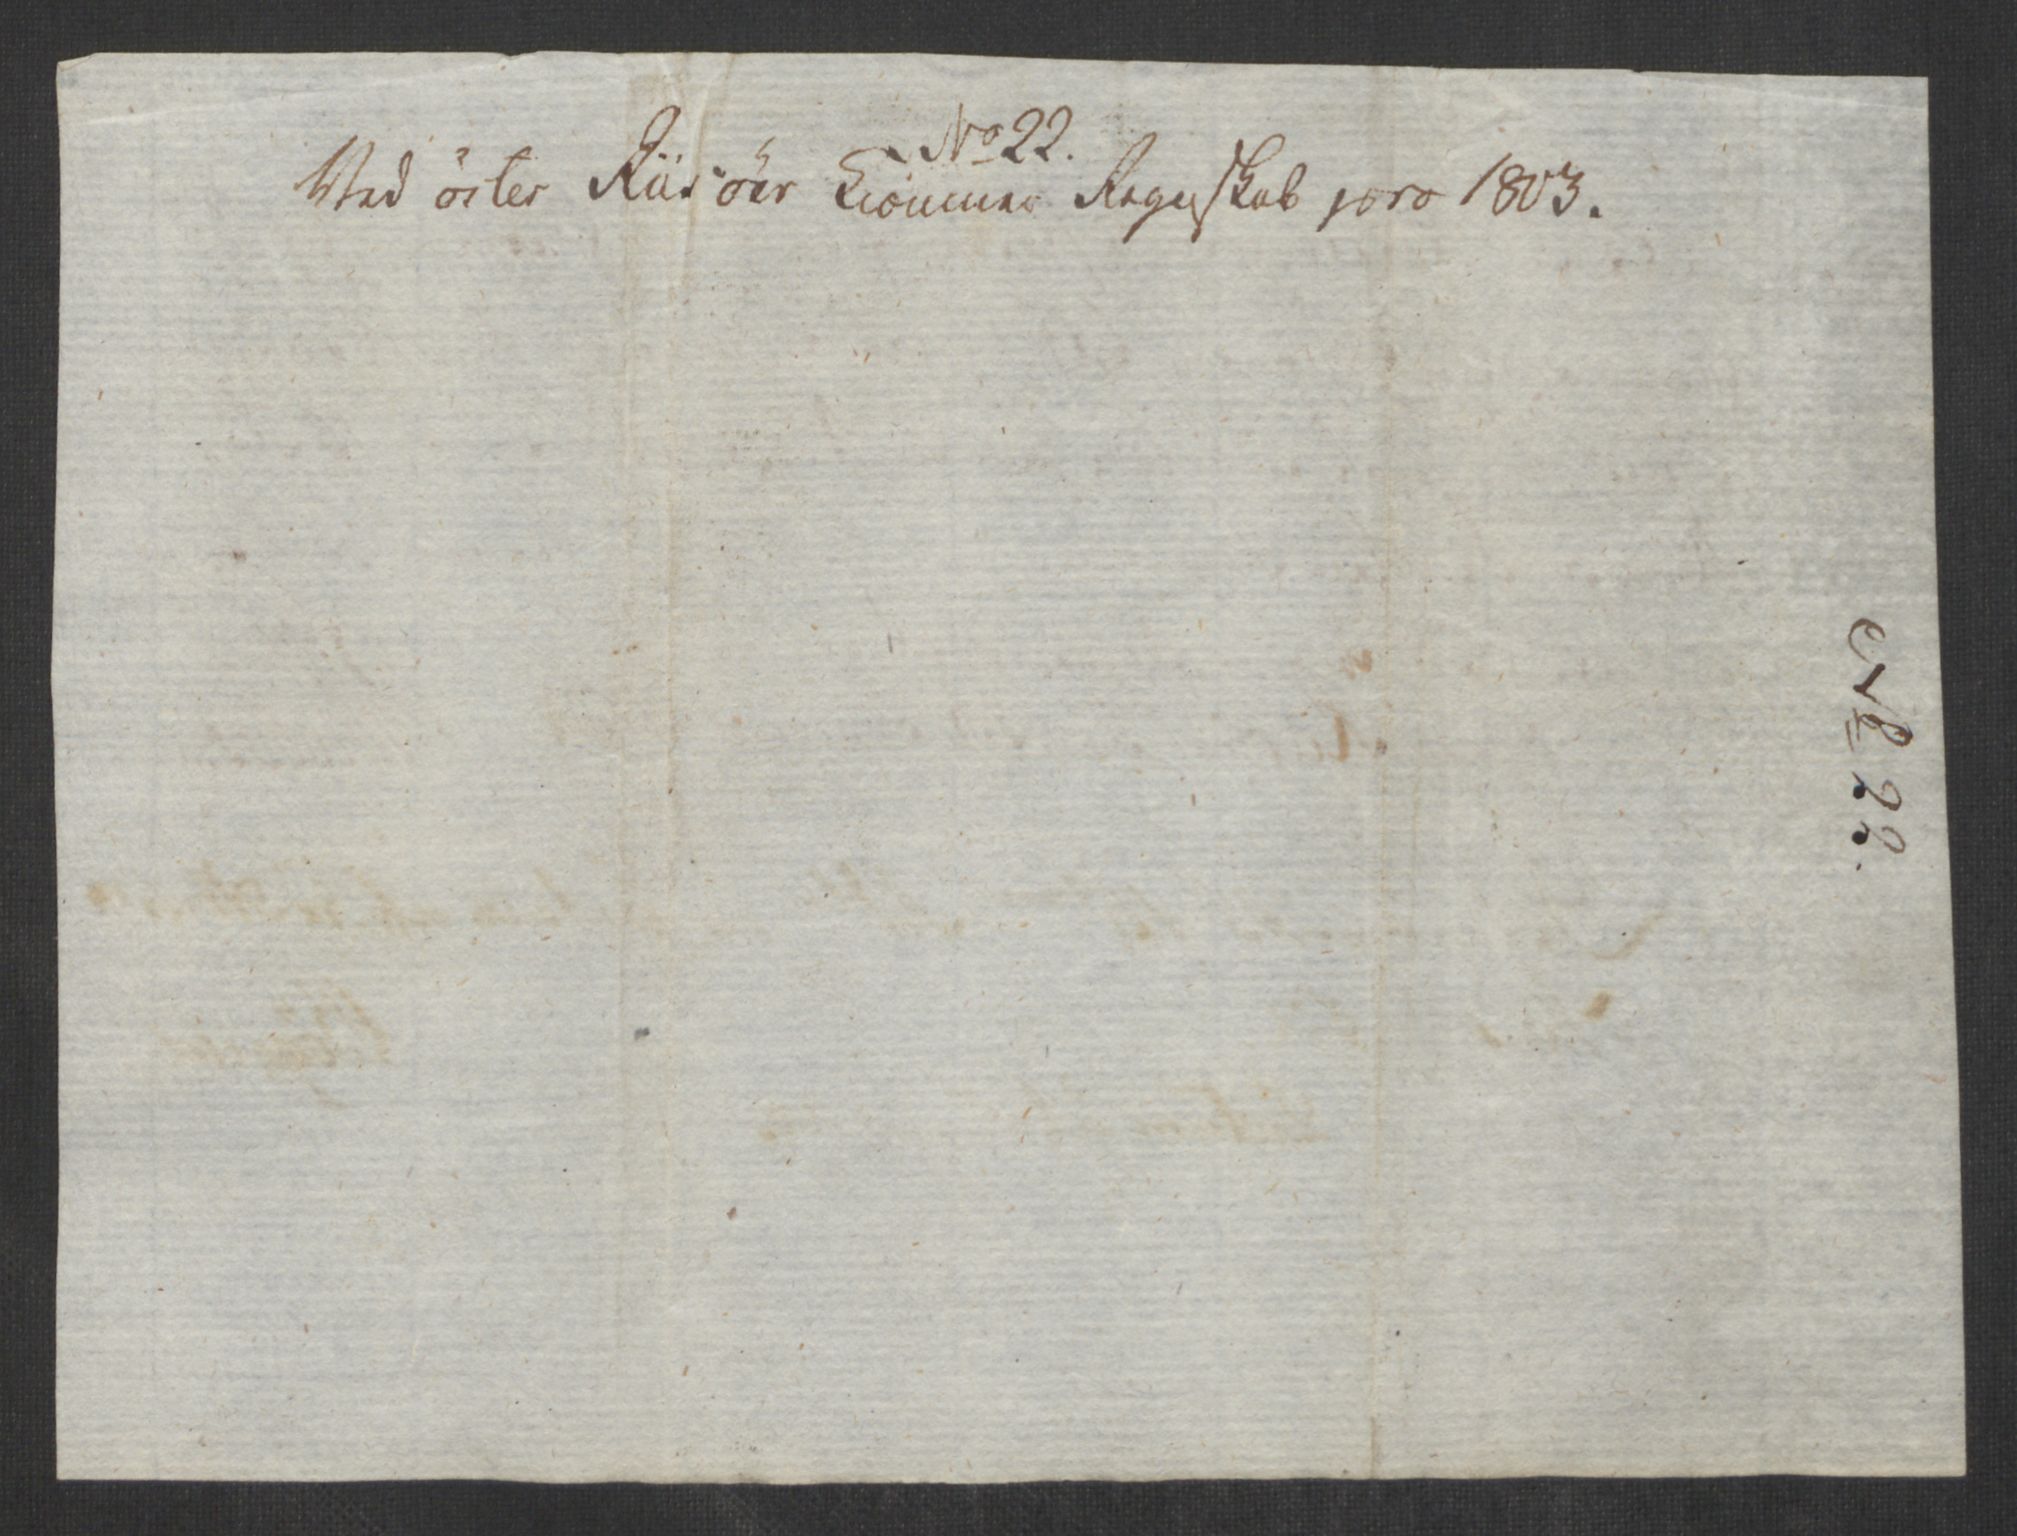 No 22.
Ved öster Riisöer Kiæmner Regnskab pro 1803.
No 22.